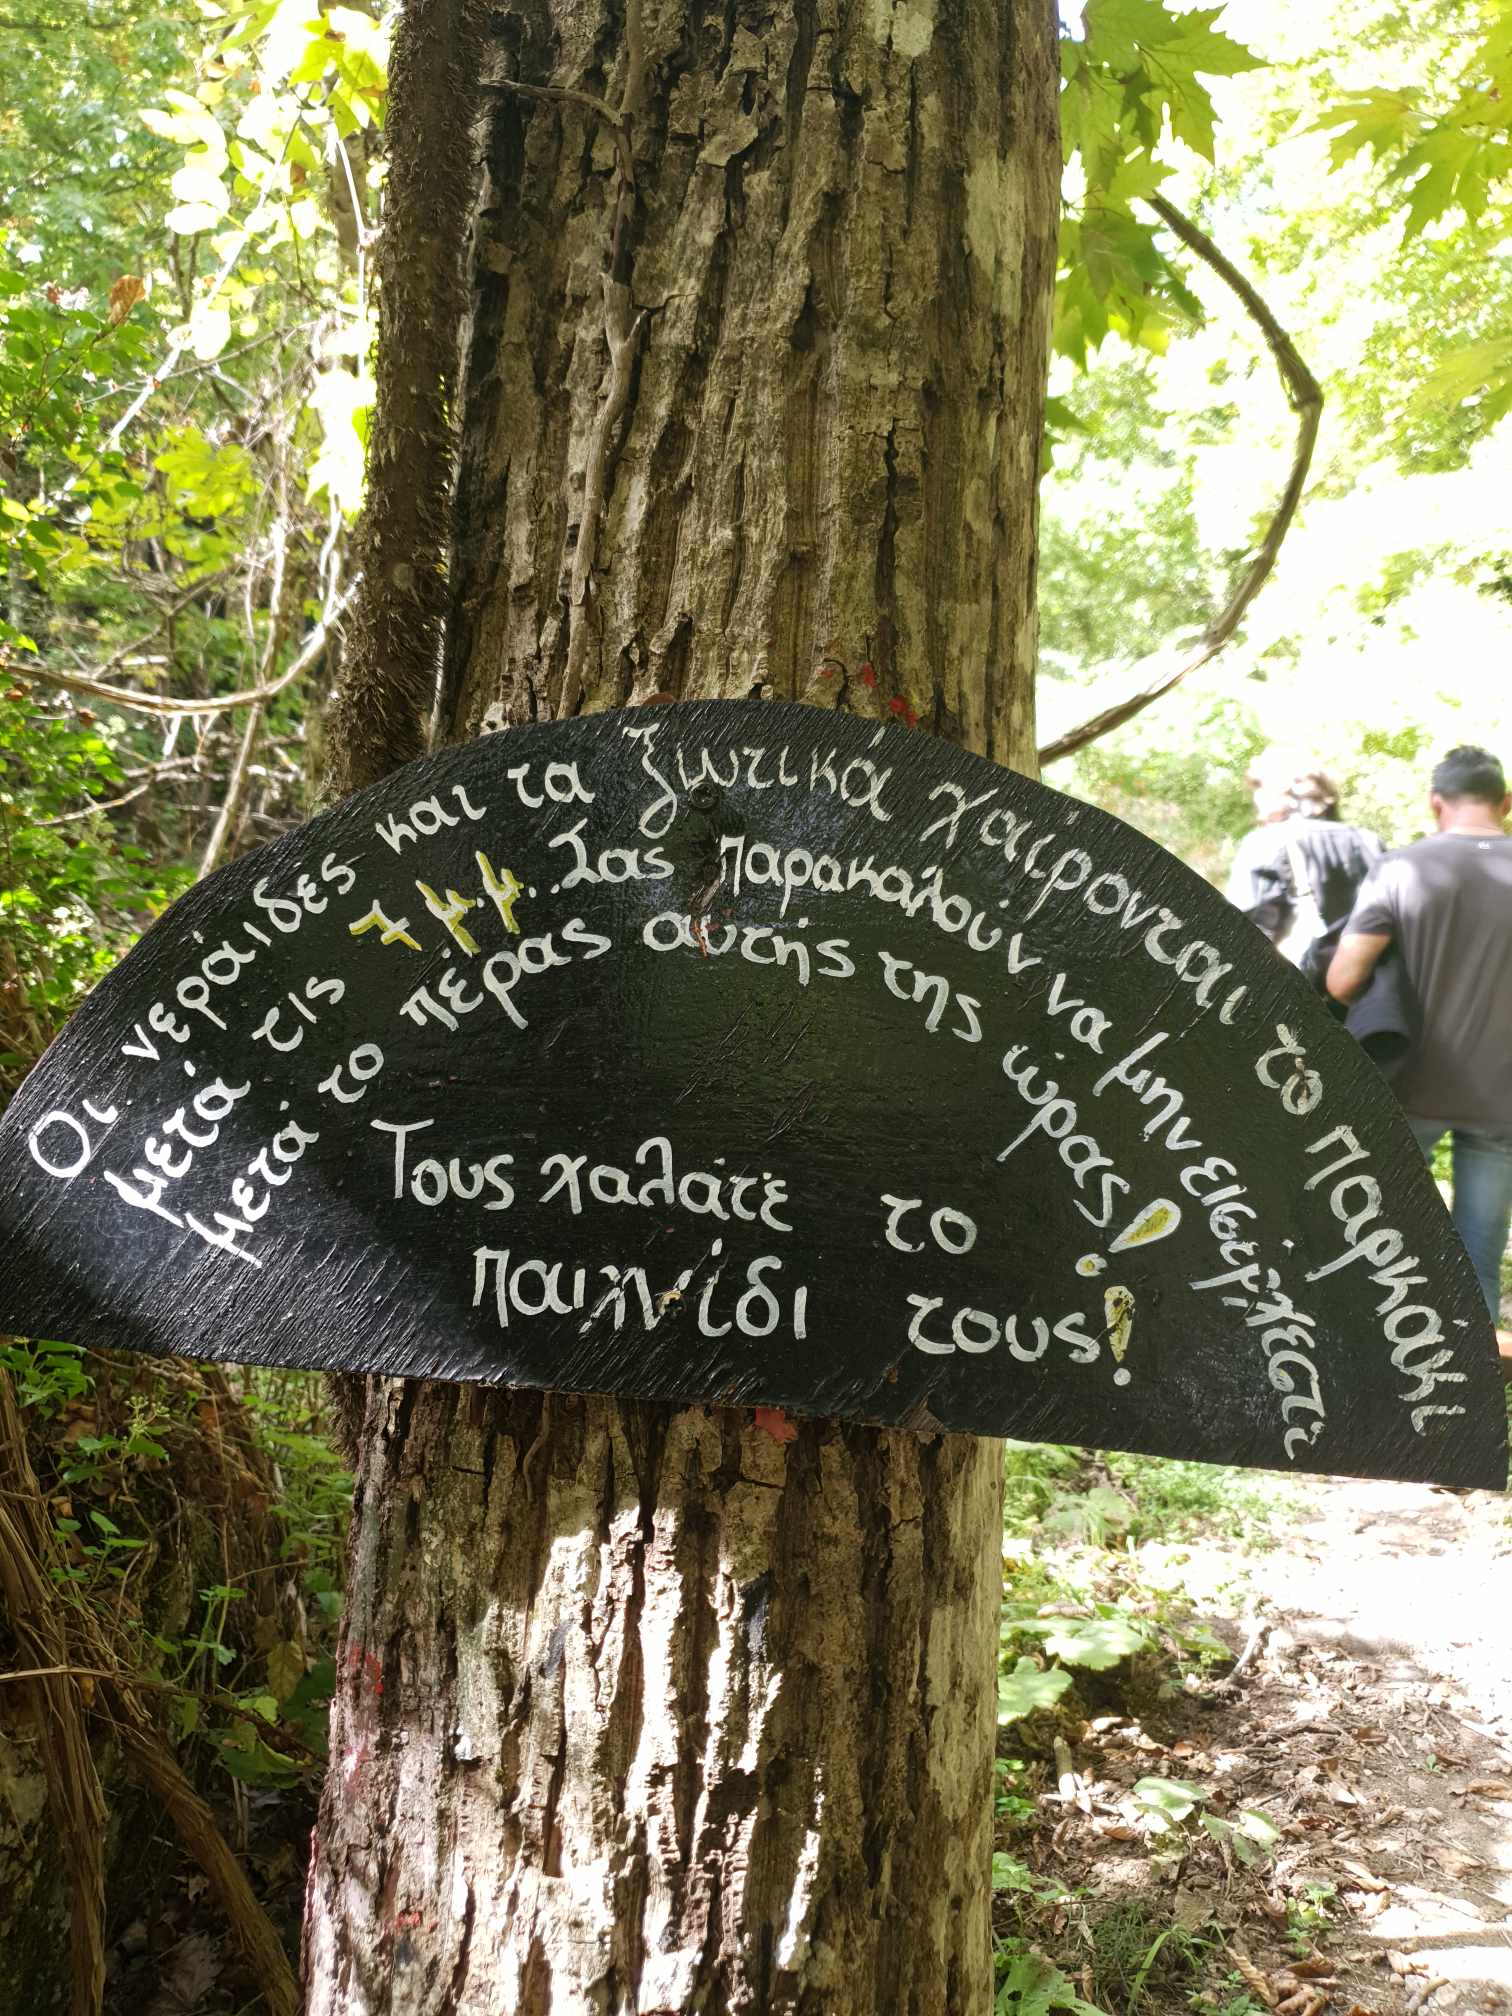 Οι νεράιδες και τα ξωτικά χαίρονται το παρκάκι
μετά τις 7 μ.μ.. Σας παρακαλούν να μην εισέρχεστε
μετά το πέρας αυτής της ώρας!
Τους χαλάτε το
παιχνίδι τους!